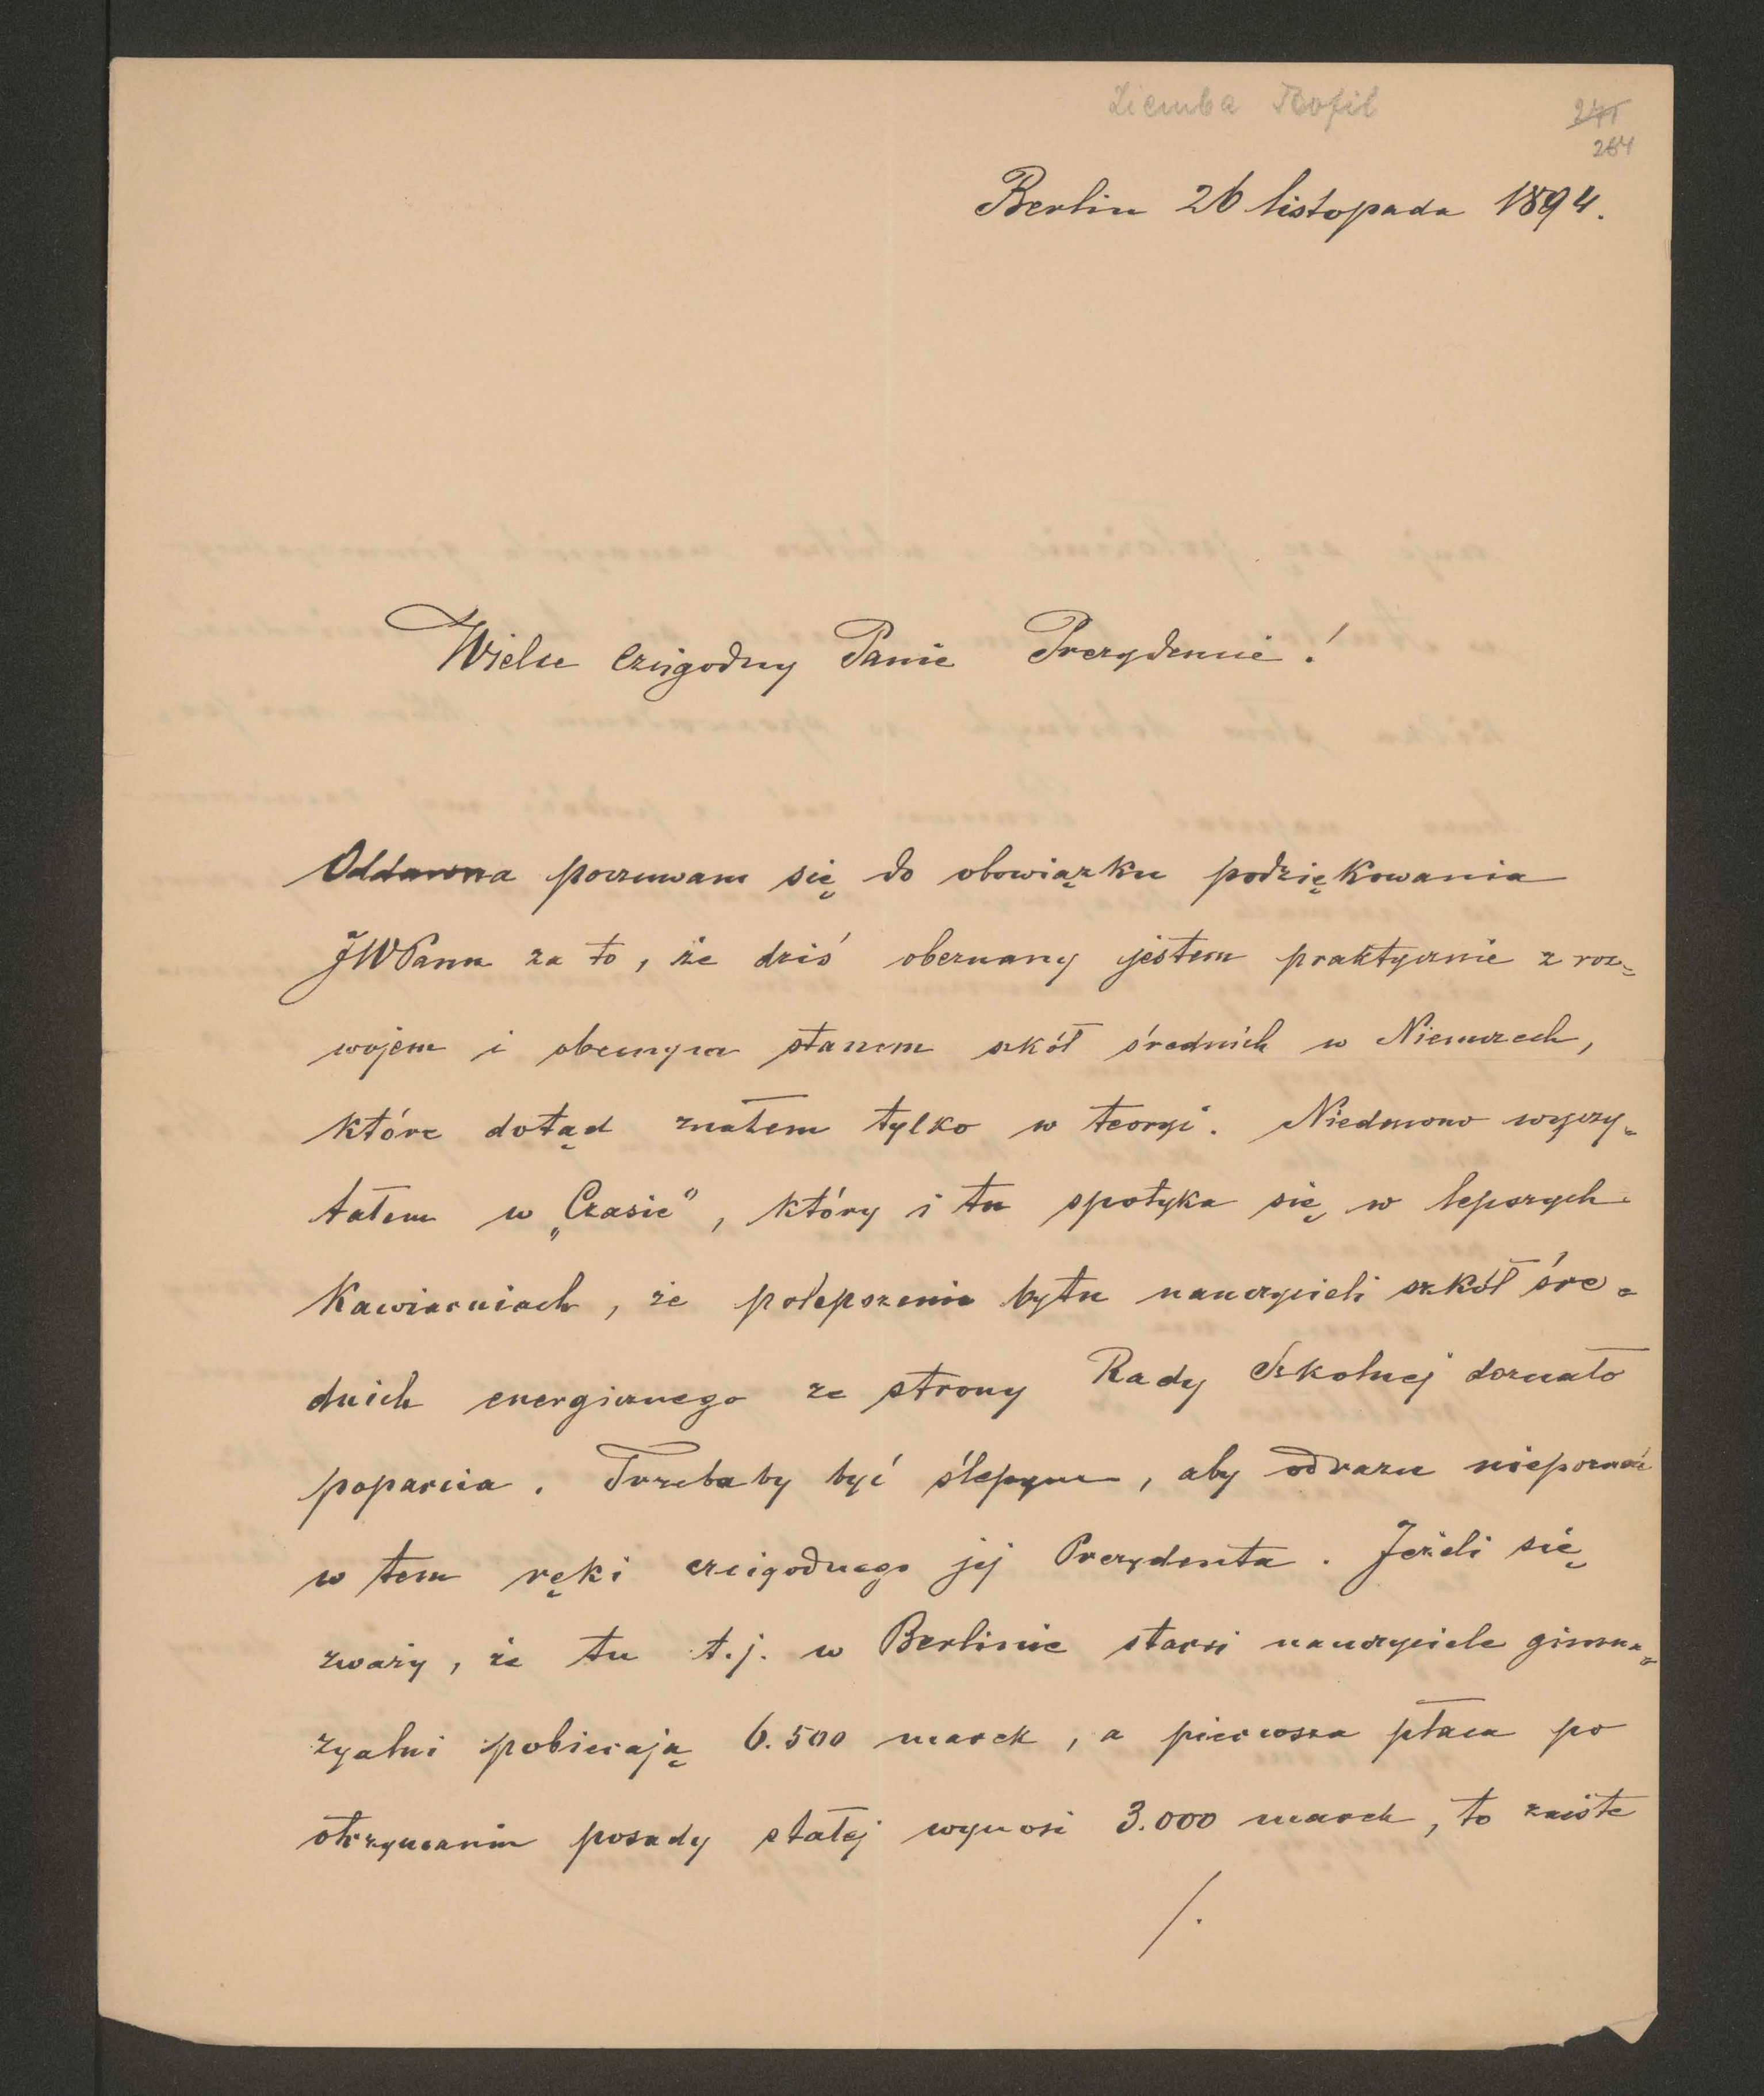 Ziemba Teofil
241
264
Berlin 26 listopada 1894.
Wielce Czcigodny Panie Prezydencie!
Oddawna poczuwam się do obowiązku podziękowania
JWPanu za to, że dziś obeznany jestem praktycznie z roz-
wojem i obecnym stanem szkół średnich w Niemczech,
które dotąd znałem tylko w teoryi. Niedawno wyczy-
tałem w „Czasie”, który i tu spotyka się w lepszych
Kawiarniach, że polepszenie bytu nauczycieli szkół śre-
dnich energicznego ze strony Rady Szkolnej doznało
poparcia. Trzebaby być ślepym, aby odrazu niepoznać
w tem ręki czcigodnego jej Prezydenta. Jeżeli się
zważy, że tu t.j. w Berlinie starsi nauczyciele gimna-
zyalni pobierają 6.500 marek, a pierwsza płaca po
otrzymaniu posady stałej wynosi 3.000 marek, to zaiste
/.